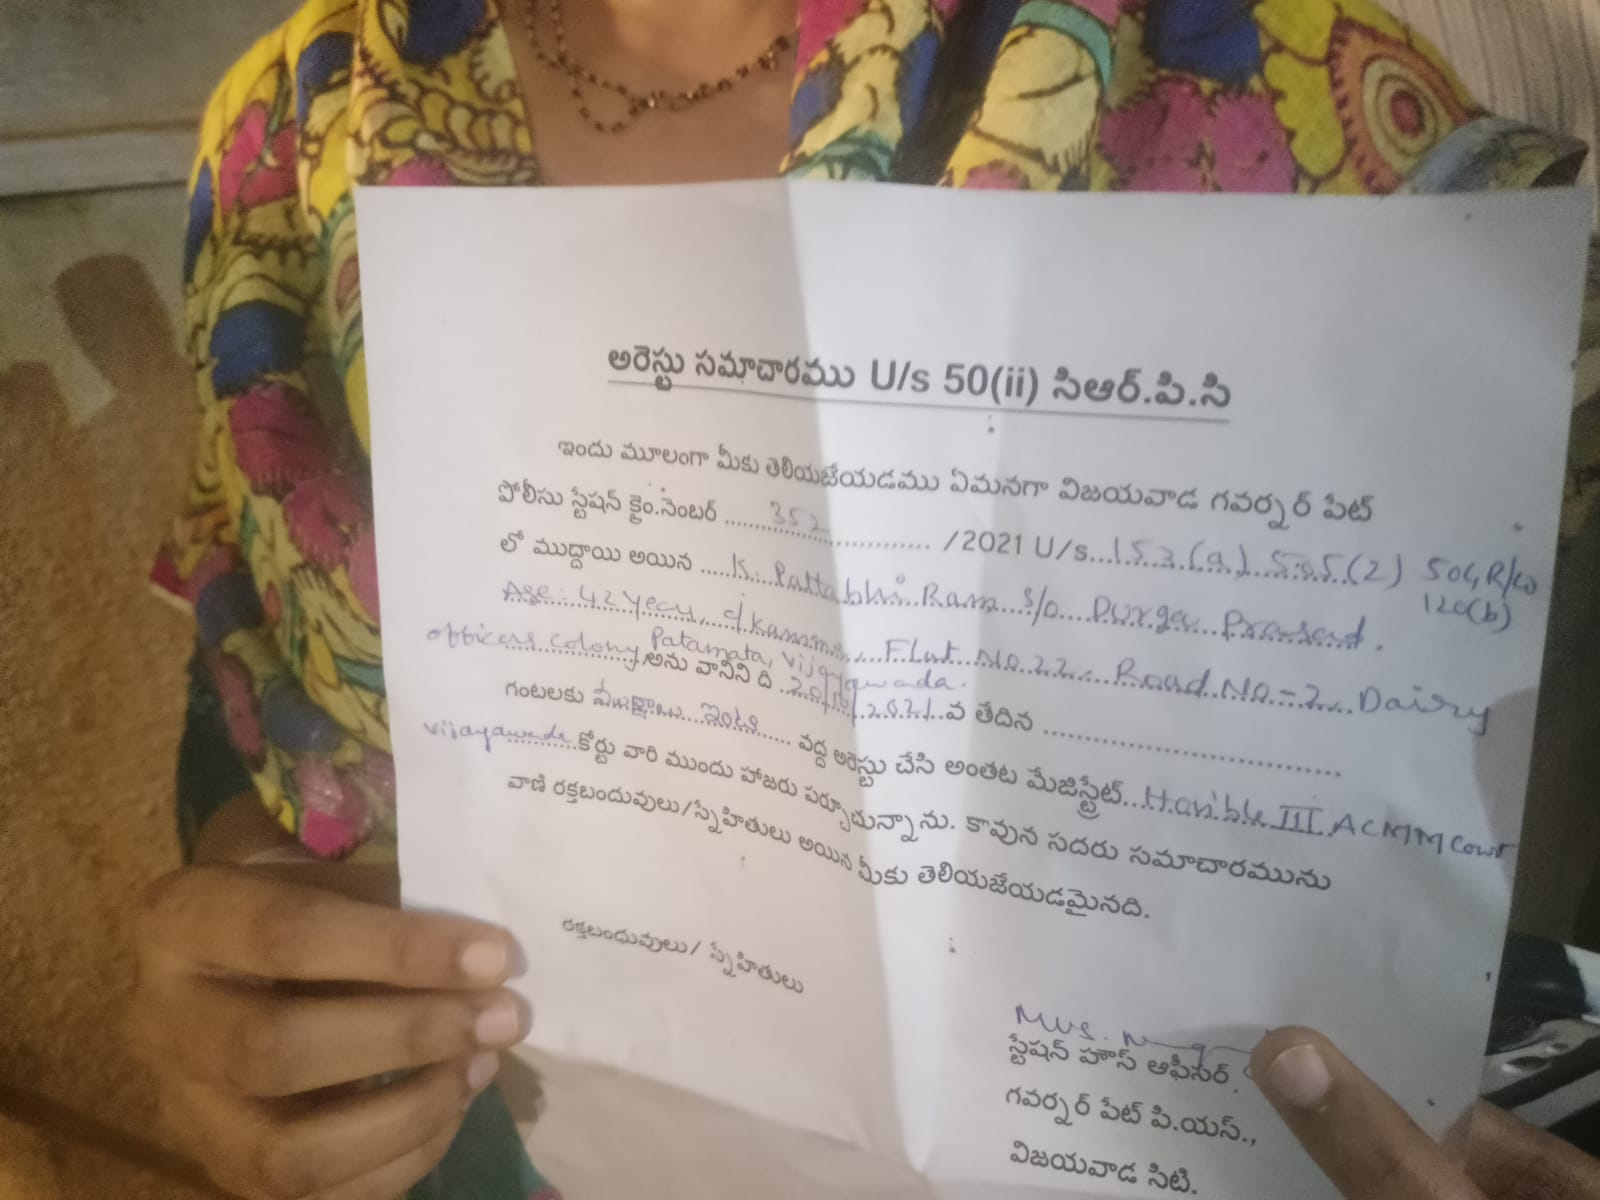 అరెస్టు సమాచారము U/s 50(ii) సిఆర్.పి.సి
ఇందు మూలంగా మీకు తెలియజేయడము ఏమనగా విజయవాడ గవర్నర్ పేట్
పోలీసు స్టేషన్ క్రైం.నెంబర్ ........352.................... /2021 U/s...153(a) 505(2) 504, R/w
120(b)
లో ముద్దాయి అయిన .....K. Pattabhi Ram S/o Durga Prasad.
Age: 42 year, c/kamma, Flat No.22, Road No-2, Dairy
officers colony Patamata, Vijayawada.
అను వానిని ది ..20/10/2021..వ తేదిన ........................................
గంటలకు ............ఇంటి...... వద్ద అరెస్టు చేసి అంతట మేజిస్ట్రేట్...Hon'ble III ACMM Court
vijayawada కోర్టు వారి ముందు హాజరు పర్చూచున్నాను. కావున సదరు సమాచారమును
వాణి రక్తబందువులు/స్నేహితులు అయిన మీకు తెలియజేయడమైనది.
రక్తబంధువులు/ స్నేహితులు
స్టేషన్ హౌస్ ఆఫీసర్.
గవర్నర్ పేట్ పి.యస్.,
విజయవాడ సిటి.